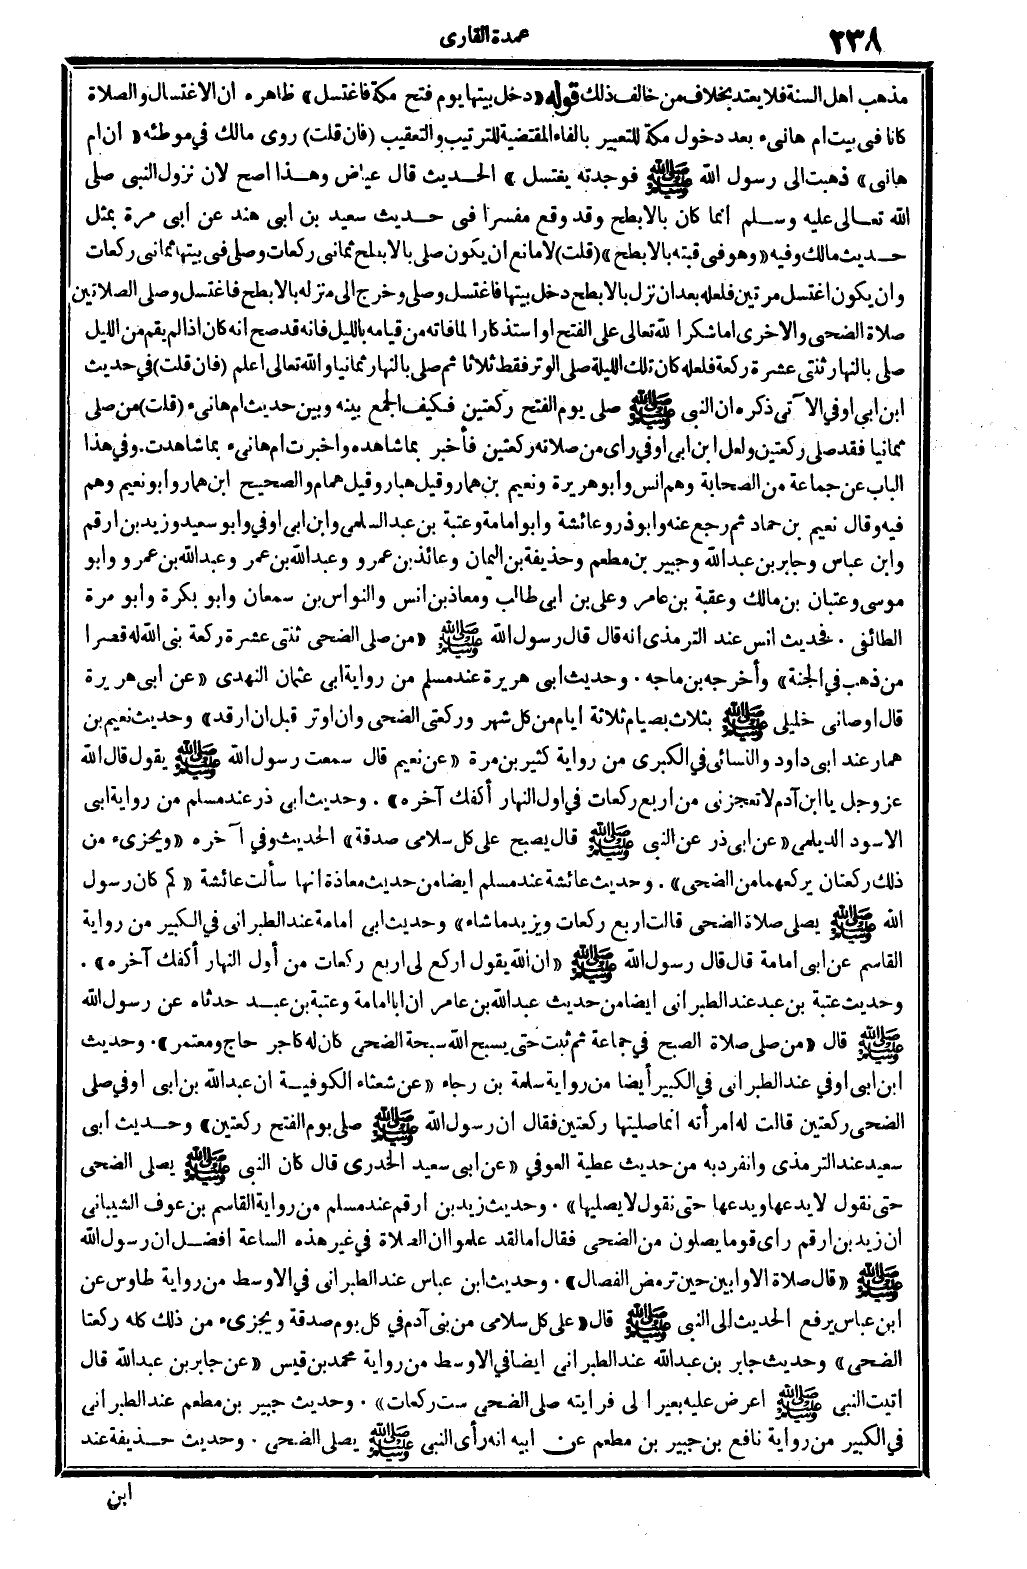 ٢٣٨
عمدة القارى
مذهب اهل السنة فلا يعتد بخلاف من خالف ذلك قوله «دخل بيتها يوم فتح مكة فاغتسل» ظاهره ان الاغتسال والصلاة
كانا فى بيت ام هانىء بعد دخول مكة للتعبير بالفاء المقتضية للترتيب والتعقيب (فان قلت) روى مالك في موطئه «ان ام
هانى» ذهبت الى رسول الله ﷺ فوجدته يغتسل» الحديث قال عياض وهذا اصح لان نزول النبى صلى
الله تعالى عليه وسلم انما كان بالابطح وقد وقع مفسرا فى حديث سعيد بن ابى هند عن ابى مرة بمثل
حديث مالك وفيه «وهو فى قبته بالابطح»(قلت) لا مانع ان يكون صلى بالابطح ثمانى ركعات وصلى فى بيتها ثمانى ركعات
وان يكون اغتسل مرتين فلعله بعد ان نزل بالابطح دخل بيتها فاغتسل وصلى وخرج الى منزله بالابطح فاغتسل وصلى الصلاتين
صلاة الضحى والاخرى اما شكرا لله تعالى على الفتح او استذكارا لما فاته من قيامه بالليل فانه قد صح انه كان اذا لم يقم من الليل
صلى بالنهار ثنتى عشرة ركعة فلعله كان تلك الليلة صلى الوتر فقط ثلاثا ثم صلى بالنهار ثمانيا والله تعالى اعلم (فان قلت)في حديث
ابن ابي اوفي الآتى ذكره ان النبى ﷺ صلى يوم الفتح ركعتين فكيف الجمع بينه وبين حديث ام هانىء (قلت) من صلى
ثمانيا فقد صلى ركعتين ولعل ابن ابى اوفي راى من صلاته ركعتين فأخبر بما شاهده واخبرت ام هانىء بما شاهدت. وفي هذا
الباب عن جماعة من الصحابة وهم انس وابو هريرة ونعيم بن همار وقيل هبار وقيل همام والصحيح ابن همار وابو نعيم وهم
فيه وقال نعيم بن حماد ثم رجع عنه وابو ذر وعائشة وابو امامة وعتبة بن عبد السلمى وابن ابى اوفي وابو سعيد وزيد بن ارقم
وابن عباس وجابر بن عبد الله وجبير بن مطعم وحذيفة بن اليمان وعائذ بن عمرو وعبد الله بن عمر وعبد الله بن عمرو وابو
موسى وعتبان بن مالك وعقبة بن عامر وعلى بن ابى طالب ومعاذ بن انس والنواس بن سمعان وابو بكرة وابو مرة
الطائفى . فحديث انس عند الترمذى انه قال قال رسول الله ﷺ «من صلى الضحى ثنتى عشرة ركعة بنى الله له قصرا
من ذهب في الجنة» وأخرجه بن ماجه . وحديث ابى هريرة عند مسلم من رواية ابى عثمان النهدى «عن ابى هريرة
قال اوصانى خليلى ﷺ بثلاث بصيام ثلاثة ايام من كل شهر وركعتى الضحى وان اوتر قبل ان ارقد» وحديث نعيم بن
همار عند ابى داود والنسائى في الكبرى من رواية كثير بن مرة «عن نعيم قال سمعت رسول الله ﷺ يقول قال الله
عز وجل يا ابن آدم لا تعجزنى من اربع ركعات في اول النهار أكفك آخره» . وحديث ابى ذر عند مسلم من رواية ابى
الاسود الديلمى «عن ابى ذر عن النبى ﷺ قال يصبح على كل سلامى صدقة» الحديث وفي آخره «ويجزىء من
ذلك ركعتان يركعهما من الضحى» . وحديث عائشة عند مسلم ايضا من حديث معاذة انها سألت عائشة «كم كان رسول
الله ﷺ يصلى صلاة الضحى قالت اربع ركعات ويزيد ما شاء» وحديث ابى امامة عند الطبرانى في الكبير من رواية
القاسم عن ابى امامة قال قال رسول الله ﷺ «ان الله يقول اركع لى اربع ركعات من أول النهار أكفك آخره» .
وحديث عتبة بن عبد عند الطبرانى ايضا من حديث عبد الله بن عامر ان ابا امامة وعتبة بن عبد حدثاه عن رسول الله
ﷺ قال «من صلى صلاة الصبح في جماعة ثم ثبت حتى يسبح الله سبحة الضحى كان له كاجر حاج ومعتمر». وحديث
ابن ابى اوفي عند الطبرانى في الكبير أيضا من رواية سلمة بن رجاء «عن شعثاء الكوفية ان عبد الله بن ابى اوفي صلى
الضحى ركعتين قالت له امرأته انما صليتها ركعتين فقال ان رسول الله ﷺ صلى يوم الفتح ركعتين» وحديث أبى
سعيد عند الترمذى وانفرد به من حديث عطية العوفي «عن ابى سعيد الخدرى قال كان النبى ﷺ يصلى الضحى
حتى نقول لا يدعها ويدعها حتى نقول لا يصليها» . وحديث زيد بن ارقم عند مسلم من رواية القاسم بن عوف الشيبانى
ان زيد بن ارقم راى قوما يصلون من الضحى فقال اما لقد علموا ان الصلاة في غير هذه الساعة افضل ان رسول الله
ﷺ «قال صلاة الاوابين حين ترمض الفصال» . وحديث ابن عباس عند الطبرانى في الاوسط من رواية طاوس عن
ابن عباس يرفع الحديث الى النبى ﷺ قال «على كل سلامى من بنى آدم في كل يوم صدقة ويجزىء من ذلك كله ركعتا
الضحى» وحديث جابر بن عبد الله عند الطبرانى ايضا في الاوسط من رواية محمد بن قيس «عن جابر بن عبد الله قال
اتيت النبى ﷺ اعرض عليه بعيرا لى فرايته صلى الضحى ست ركعات» . وحديث جبير بن مطعم عند الطبرانى
في الكبير من رواية نافع بن جبير بن مطعم عن ابيه انه رأى النبى ﷺ يصلى الضحى . وحديث حذيفة عند
ابن